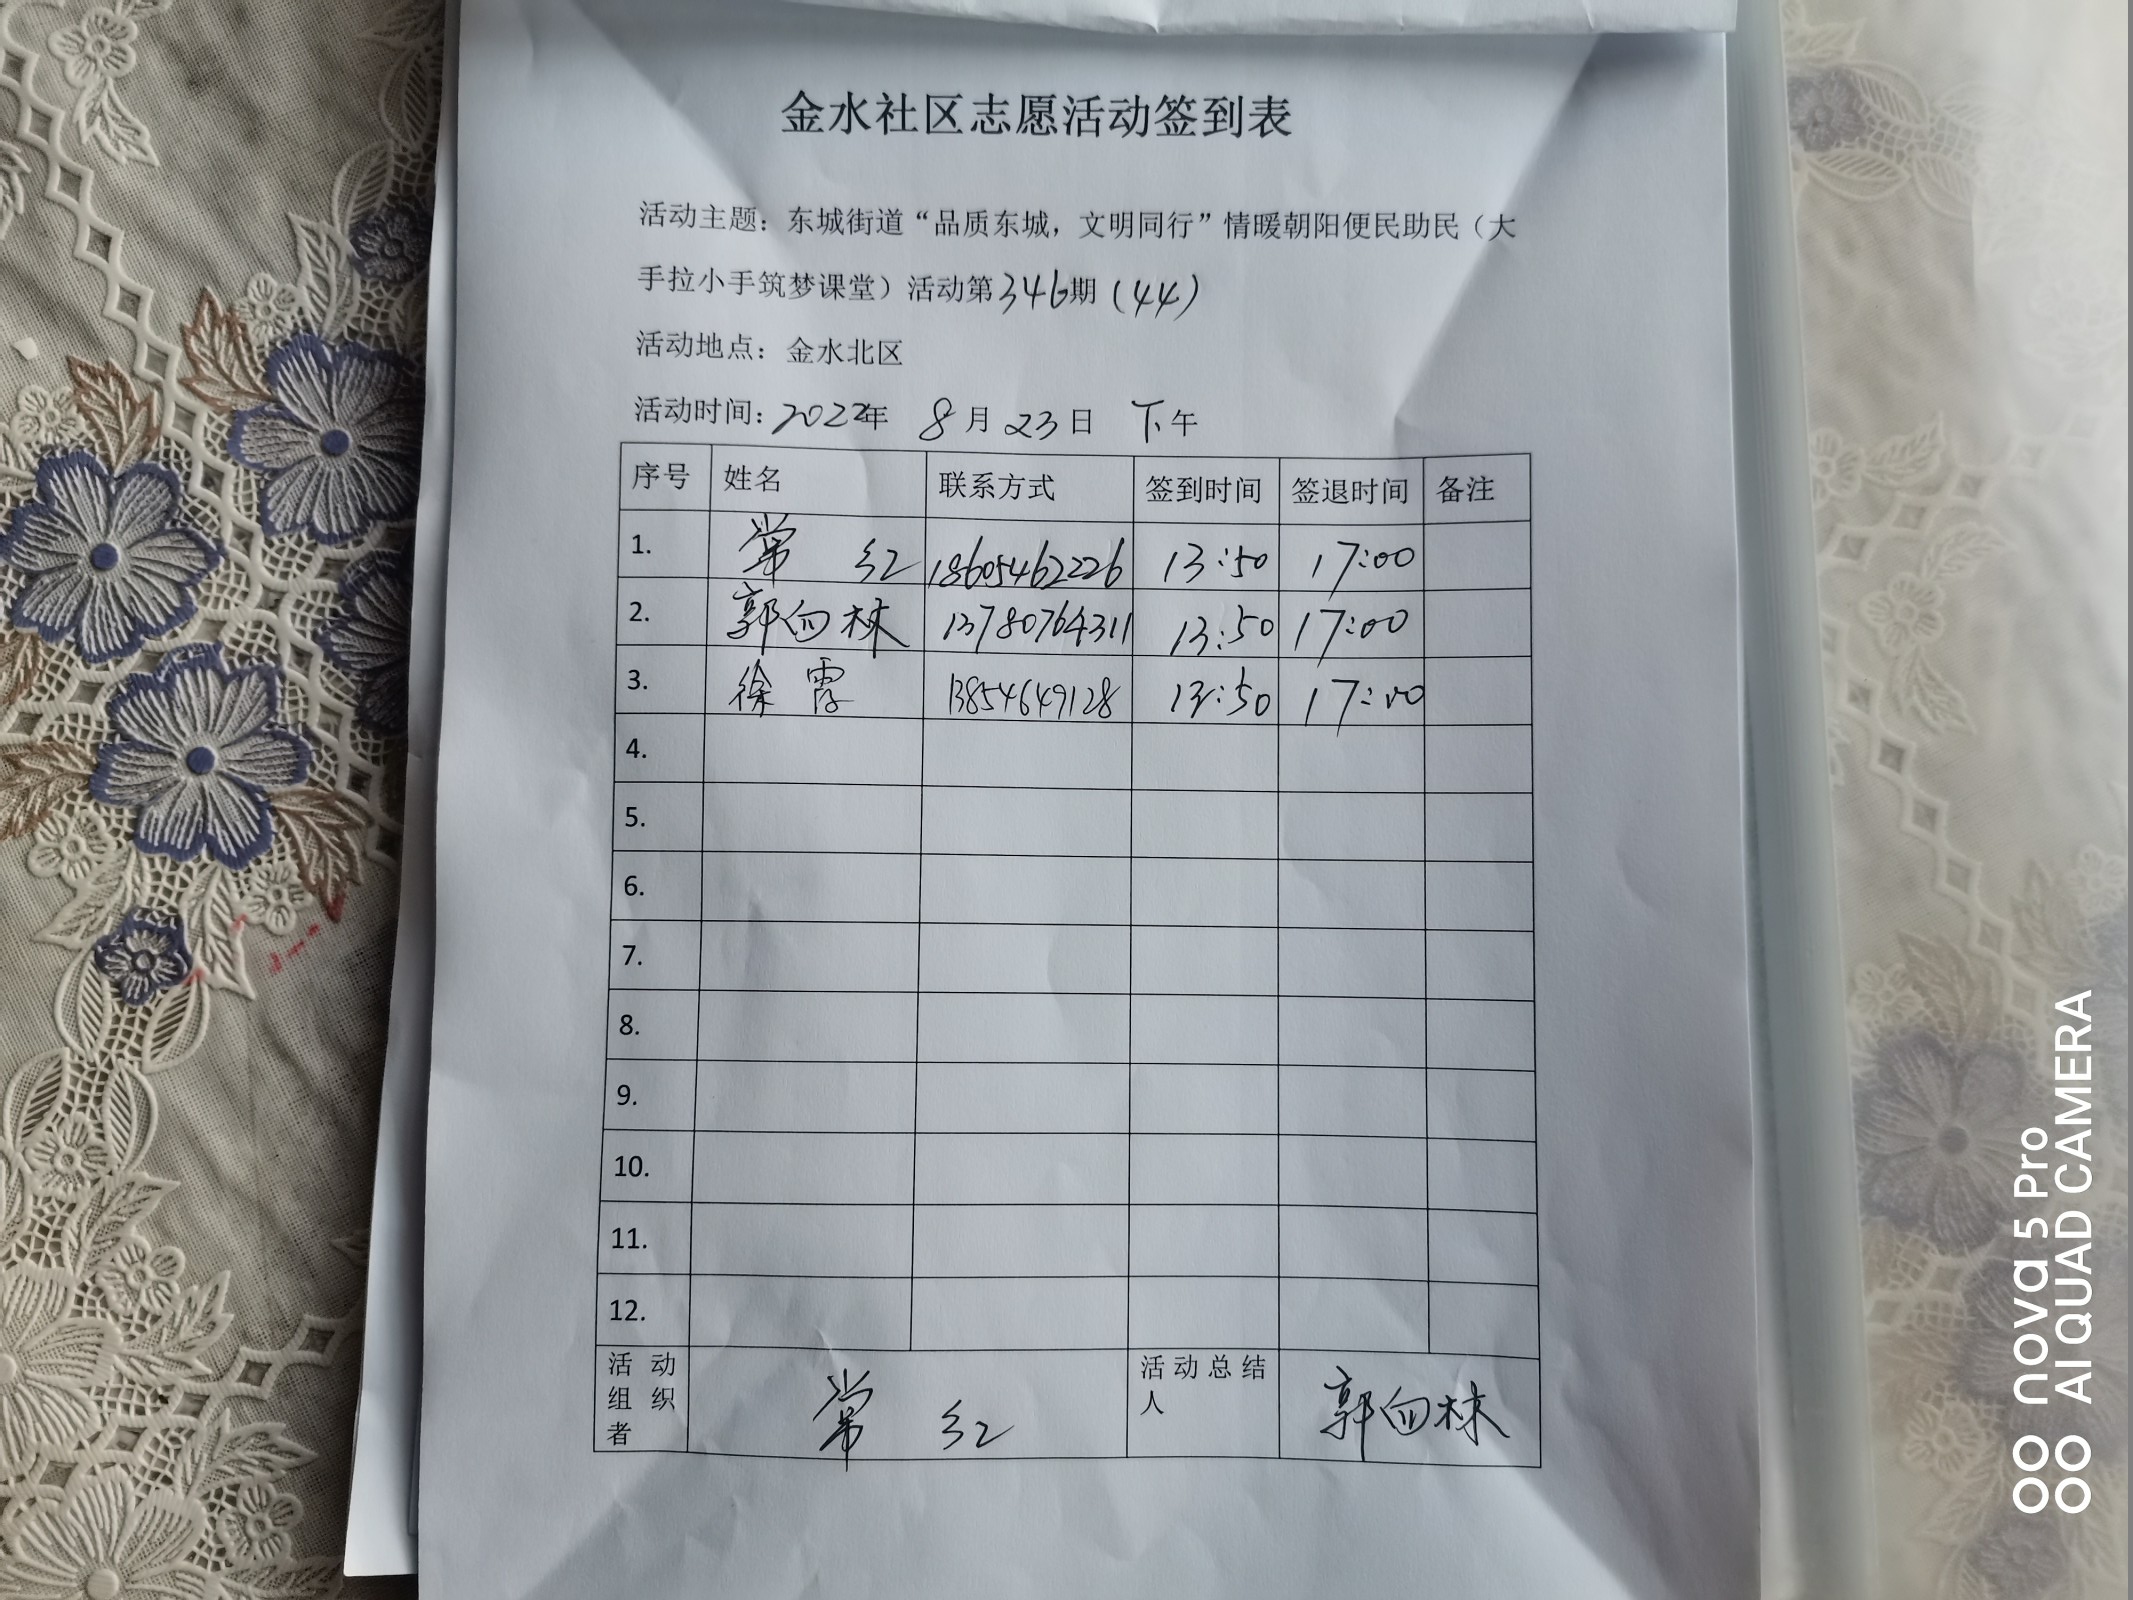 金水社区志愿活动签到表
活动主题：东城街道“品质东城，文明同行”情暖朝阳便民助民（大
手拉小手筑梦课堂）活动第346期(44)
活动地点：金水北区
活动时间：2022年 8月23日 下午
序号 姓名 联系方式 签到时间 签退时间 备注
1. 常 红 18605462226 13:50 17:00
2. 郭向林 13780764311 13:50 17:00
3. 徐霞 13854649128 13:50 17:00
4.
5.
6.
7.
8.
9.
10.
11.
12.
活动组织者 常 红 活动总结人 郭向林
nova 5 Pro
AI QUAD CAMERA